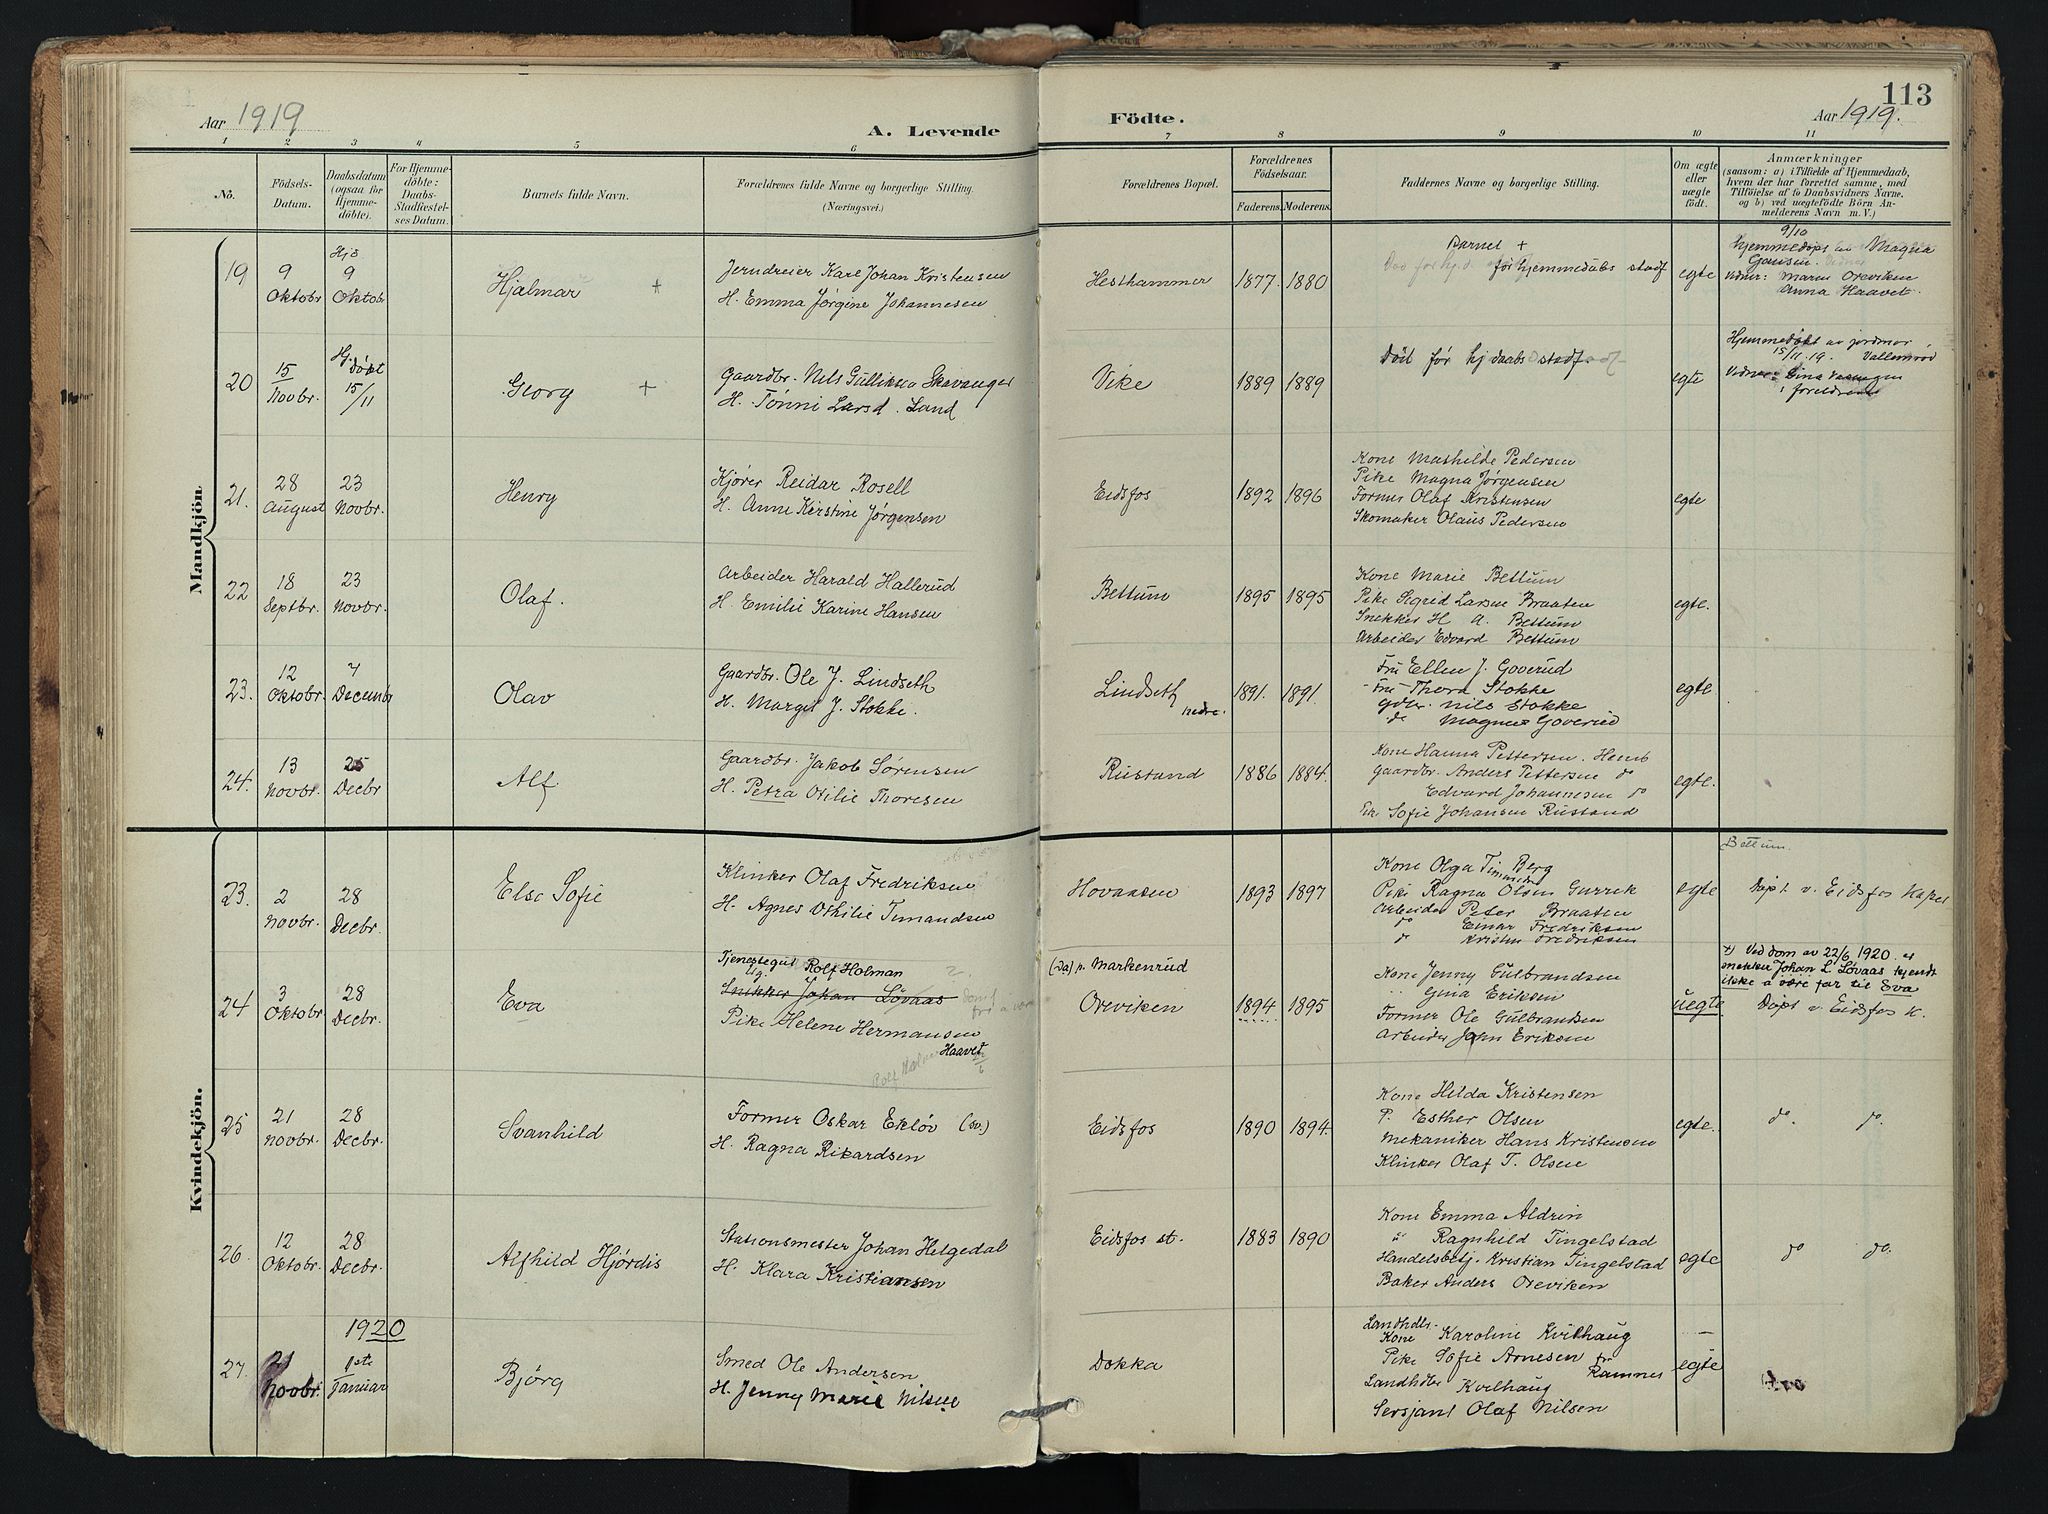 Aar 1919
A. Levende
Födte.
Aar 1919.
113
1 2 3 4 5 6 7 8 9 10 11
No.
Födsels-
Datum.
Daabsdatum
(ogsaa for
Hjemme-
döbte).
For Hjemme-
döbte:
Daabs-
Stadfæstel-
ses Datum.
Barnets fulde Navn.
Forældrenes fulde Navne og borgerlige Stilling.
(Næringsvei.)
Forældrenes Bopæl.
Forældrenes
Födselsaar.
Faderens. Moderens.
Faddernes Navne og borgerlige Stilling.
Om ægte
eller
uægte
födt.
Anmærkninger
(saasom: a) i Tilfælde af Hjemmedaab,
hvem der har forrettet samme, med
Tilföielse af to Daabsvidners Navne.
og b) ved uægtefödte Börn An-
melderens Navn m. V.)
Mandkjön
19
9
Oktobr
Hjd
9
Oktob
Hjalmar +
Jerndreier Karl Johan Kristensen
H. Emma Jørgine Johannesen
Hesthammer
1877. 1880
Barnet +
før hjemmedaabs stadf
egte
9/10
hjemmedøpt av Magna
Vidner: Maren Oreviken
Anna Haavet.
20
15
Novbr.
Hj.
Døbt
15/11
Georg +
Gaardbr. Nils Gulliksen Skavanger
H. Tønni Larsd. Land
Vike
1889 1889
Död før hj daabs stadf.
egte
Hjemmedøbt av jordmor
15/11.19. Vallemrød
Vidner: Gina
i foreldrene
21.
28
August
23
Novbr.
Henry
Kjører Reidar Rosell
H. Anne Kirstine Jørgensen
Eidsfos
1892 1896
Kone Mathilde Pedersen
Pike Magna Jørgensen
Former Olaf Kristensen
Skomaker Olaus Pedersen
egte
22
18
Septbr.
23
Novbr.
Olaf.
Arbeider Harald Hallerud
H. Emilie Karine Hansen
Bettum
1895 1895
Kone Marie Bettum
Pike Sigrid Larsen Braaten
Snekker H A. Bettum
Arbeider Edvard Bettum
egte.
23.
12
Oktobr.
7
Decembr
Olav
Gaardbr. Ole J. Lindseth
H. Margit J. Stokke.
Lindseth
nedre.
1891. 1891.
Fru Ellen J. Goverud
Fru Thora Stokke
gdbr. Nils Stokke
do Magnus Goverud
egte
24.
13
Novbr.
25
Decbr
Alf
Gaardbr. Jakob Sørensen
H. Petra Otilie Thoresen
Rustand
1886 1884.
Kone Hanna Pettersen. Hemb
Gaardbr. Anders Pettersen do
Edvard Johannesen do
Sofie Johansen Rustand
egte.
Kvindekjön.
23.
2
Novbr.
28
Decbr.
Else Sofie
Klinker Olaf Fredriksen
H. Agnes Othilie Timandsen
Hovaasen
1893 1897
Kone Olga Timmedal Berg
Pike Ragna Olsen Gurrik
Arbeider Peter Braaten
do Einar Fredriksen
do Kristen Fredriksen
egte
Bettum.
Døpt v. Eidsfos Kapel
24
3
Oktobr.
28
Decbr.
Eva
Tjenestegut Rolf Holman
Snekker Johan Løvaas
Pike Helene Hermansen
Haavet
Rolf Holman
(da) p. Markenrud
Oreviken
1894 1895
Kone Jenny Gulbrandsen
" Gina Eriksen
Former Ole Gulbrandsen
Arbeider John Eriksen
uegte
+) Ved dom av 22/6 1920. er
snekker Johan L. Løvaas kjendt
ikke å være far til Eva
Døpt v. Eidsfos K.
25
21
Novbr.
28
Decbr.
Svanhild
Former Oskar Ekløv (sv.)
H. Ragna Rikardsen
Eidsfos
1890 1894.
Kone Hilda Kristensen
P. Esther Olsen
Mekaniker Hans Kristensen
Klinker Olaf T. Olsen
egte.
do. do.
26.
12
Oktobr.
28
Decbr.
Alfhild Hjørdis
Stationsmester Johan Helgedal
H. Klara Kristiansen
Eidsfos st.
1883 1890
Kone Emma Aldrin
" Ragnhild Tingelstad
Handelsbetj. Kristian Tingelstad
Baker Anders Oreviken
egte
do do.
1920
27.
21
Novbr.
1ste
Januar
Bjørg
Smed Ole Andersen
H. Jenny Marie Nilsen
Dokka
Landhdlr.
Kone Karoline Kvilhaug
Pike Sofie Arnesen fr
Ramnes
Landhdler Kvilhaug
Sersjant Olaf Nilsen
egte